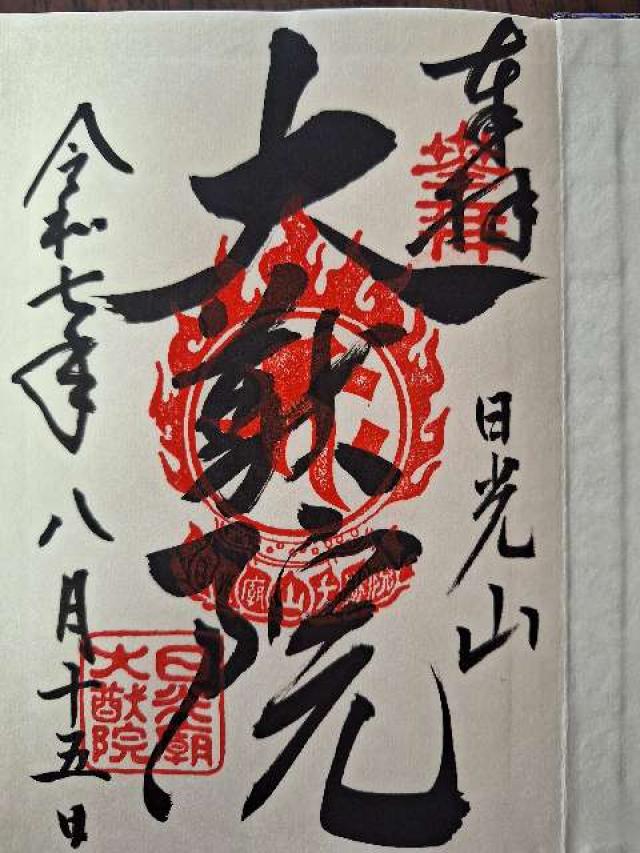 奉拝
日光山
大猷院
令和七年八月十五日
日光廟
大猷院